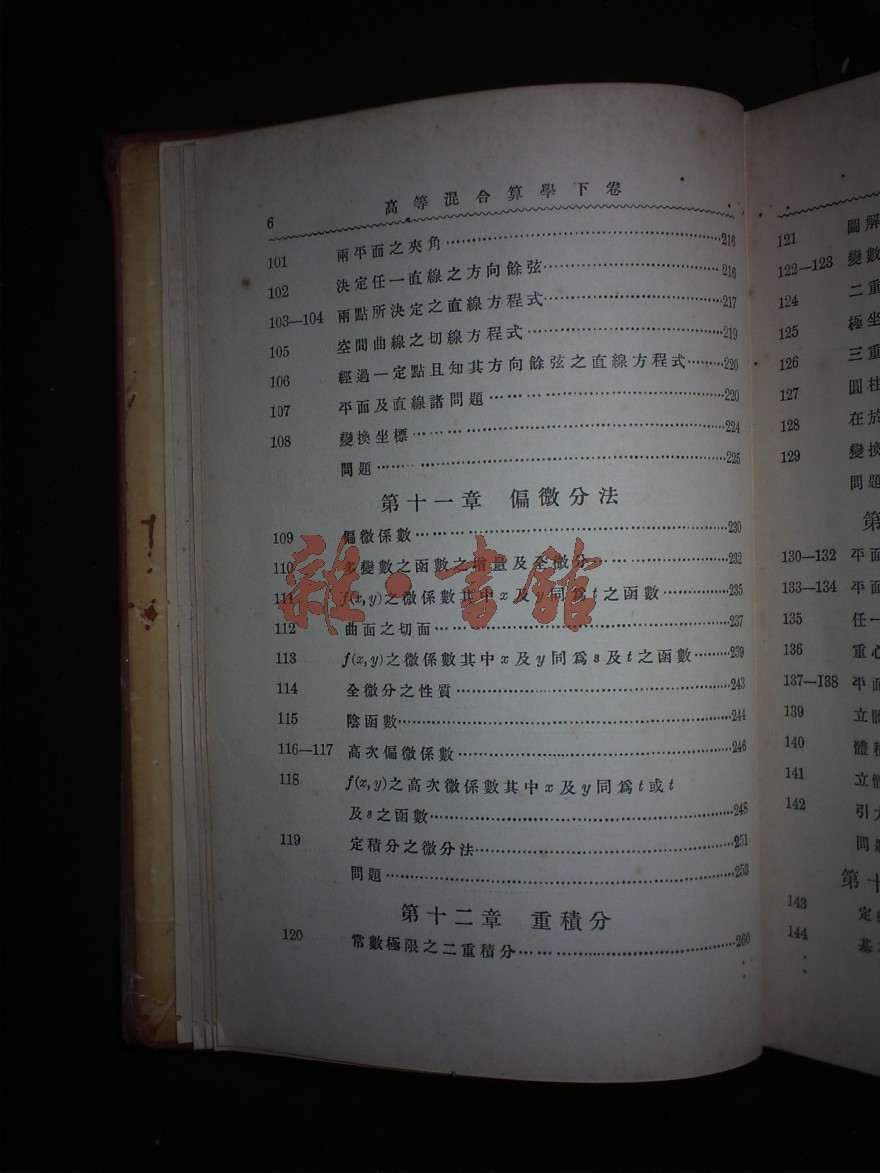 6 高等混合算學下卷
101 兩平面之夾角……216
102 決定任一直線之方向餘弦……216
103—104 兩點所決定之直線方程式……217
105 空間曲線之切線方程式……219
106 經過一定點且知其方向餘弦之直線方程式……220
107 平面及直線諸問題……220
108 變換坐標……224
問題……225
第十一章 偏微分法
109 偏微係數……230
110 多變數之函數之增量及全微分……232
111 f(x,y)之微係數其中x及y同爲t之函數……235
112 曲面之切面……237
113 f(x,y)之微係數其中x及y同爲s及t之函數……239
114 全微分之性質……243
115 陰函數……244
116—117 高次偏微係數……246
118 f(x,y)之高次微係數其中x及y同爲t或t
及s之函數……248
119 定積分之微分法……251
問題……253
第十二章 重積分
120 常數極限之二重積分……260
雜·書館
121 圖解
122—123 變數
124 二重
125 極坐
126 三重
127 圓柱
128 在於
129 變換
問題
第
130—132 平面
133—134 平面
135 任一
136 重心
137—138 平面
139 立體
140 體積
141 立體
142 引力
問題
第十
143 定
144 基